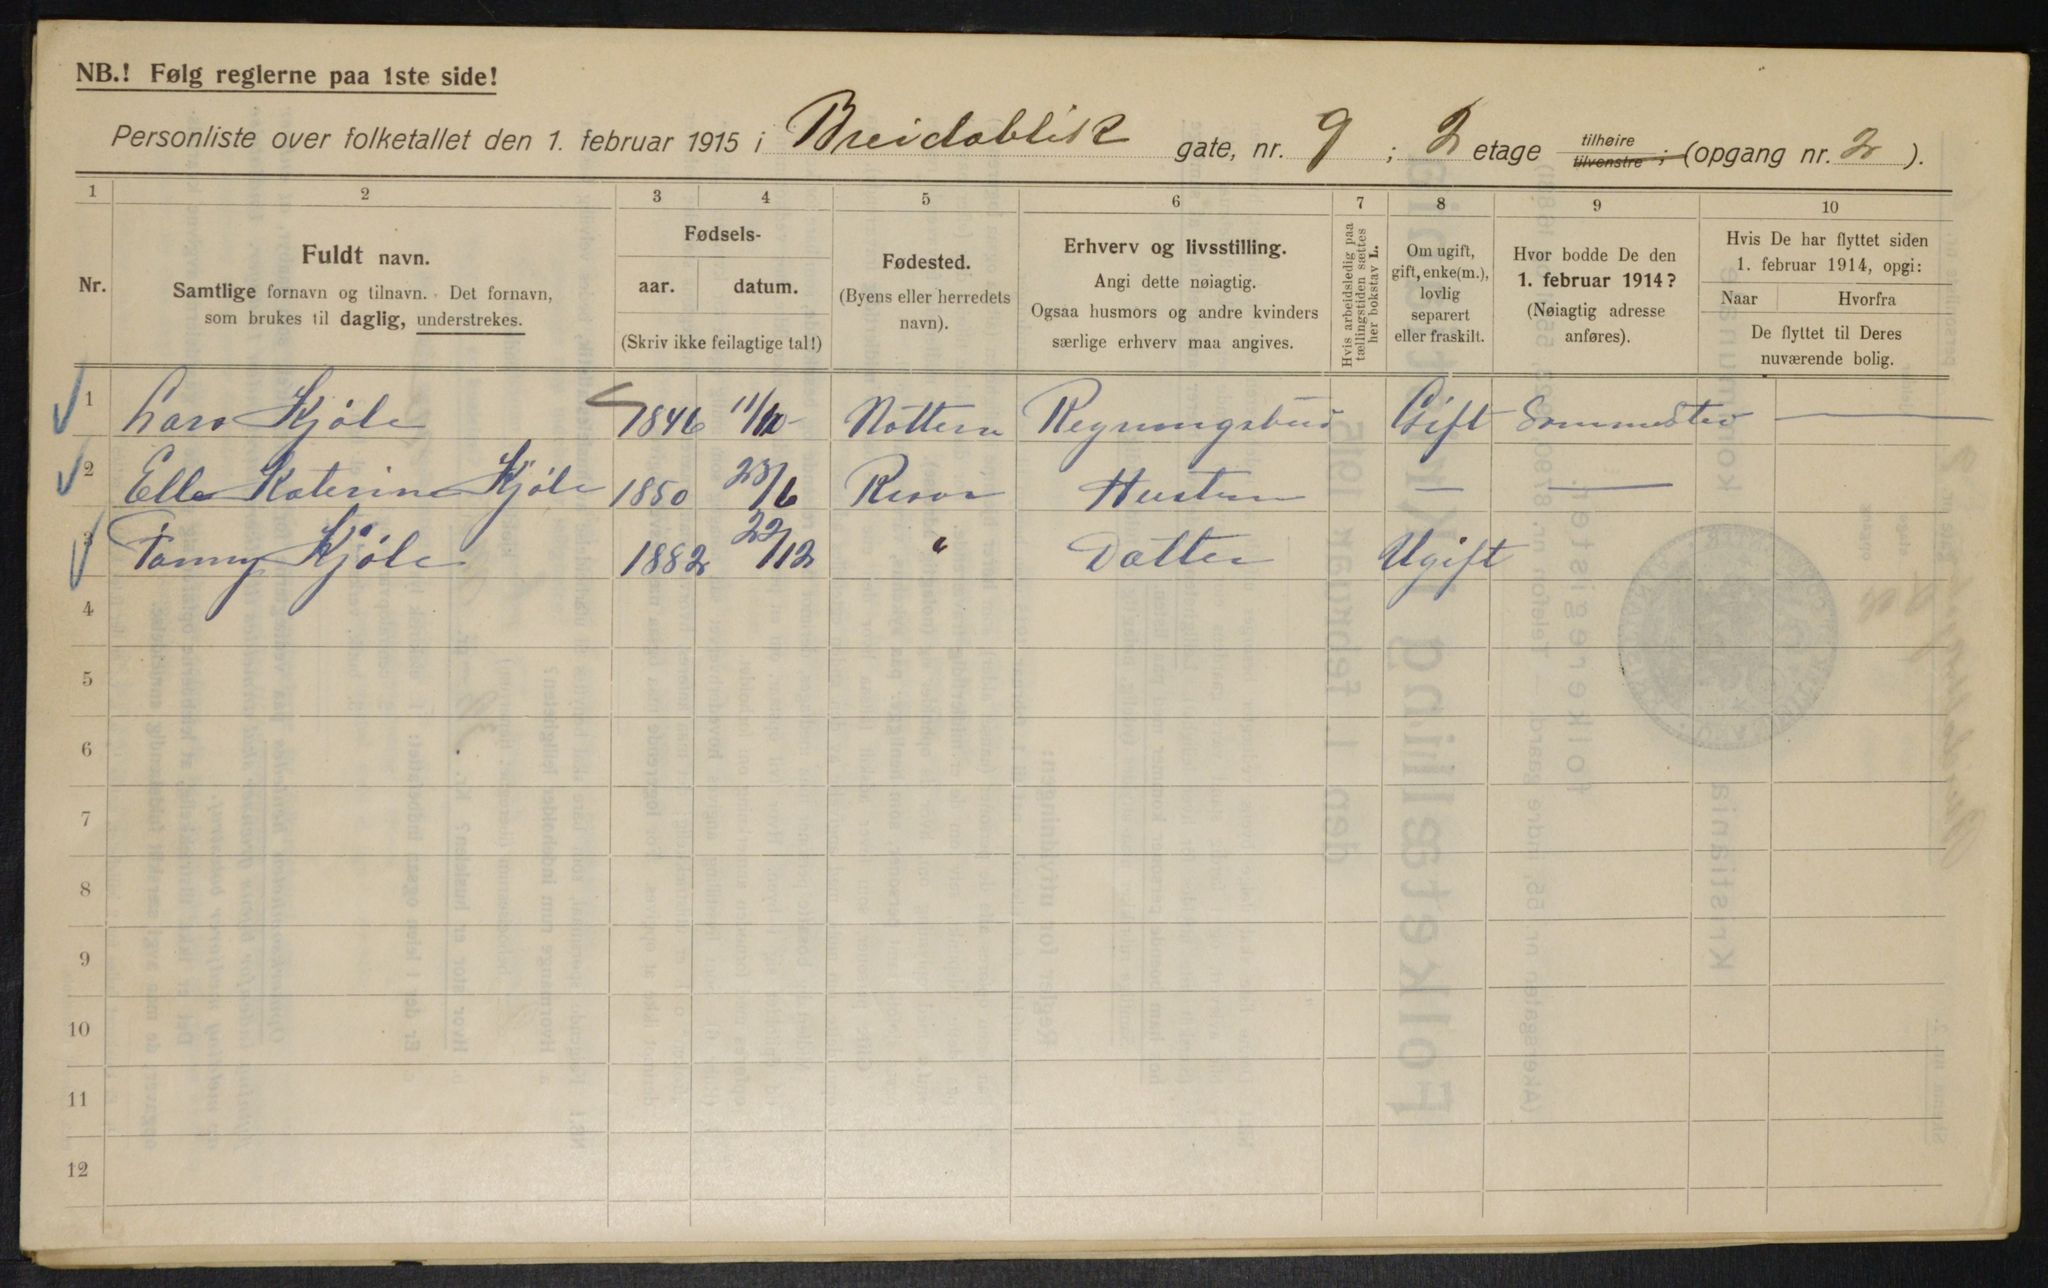 NB.! Følg reglerne paa 1ste side!
Personliste over folketallet den 1. februar 1915 i Breidablik gate, nr. 9 ; 2 etage tilhøire tilvenstre ; (opgang nr. 2 ).
1 2 3 4 5 6 7 8 9 10
Nr.
Fuldt navn.
Samtlige fornavn og tilnavn. Det fornavn,
som brukes til daglig, understrekes.
Fødsels-
aar. datum.
(Skriv ikke feilagtige tal!)
Fødested.
(Byens eller herredets
navn).
Erhverv og livsstilling.
Angi dette nøiagtig.
Ogsaa husmors og andre kvinders
særlige erhverv maa angives.
Hvis arbeidsledig paa
tællingstiden sættes
her bokstav L.
Om ugift,
gift, enke(m.),
lovlig
separert
eller fraskilt.
Hvor bodde De den
1. februar 1914?
(Nøiagtig adresse
anføres).
Hvis De har flyttet siden
1. februar 1914, opgi:
Naar Hvorfra
De flyttet til Deres
nuværende bolig.
1 Lars Kjøle 1846 11/10 Nøttern Regnungsbud Gift Sammested —
2 Elle Katerine Kjøle 1850 23/6 Risør Hustru — —
3 Fanny Kjøle 1882 22/12 " Datter Ugift
4
5
6
7
8
9
10
11
12